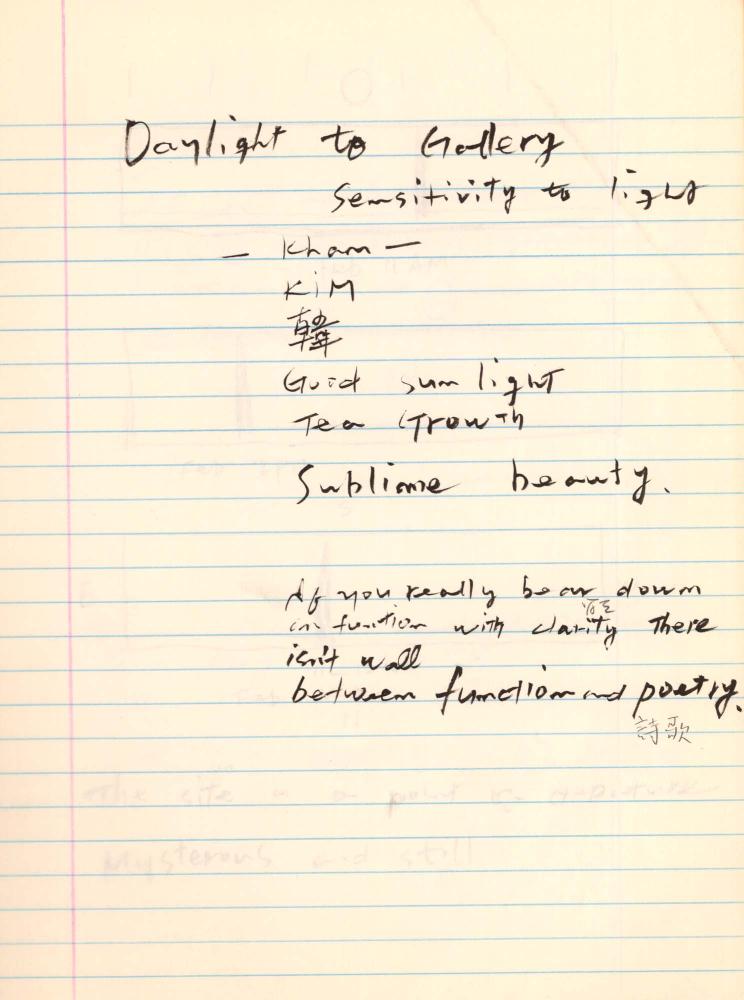 Daylight to Gallery
Sensitivity to light
— Kham —
KiM
韓
Good sun light
Tea Growth
Sublime beauty.
If you really bear down
on function with clarity There
isn't wall
between function and poetry.
詩歌
The site a point
Mysterous and still